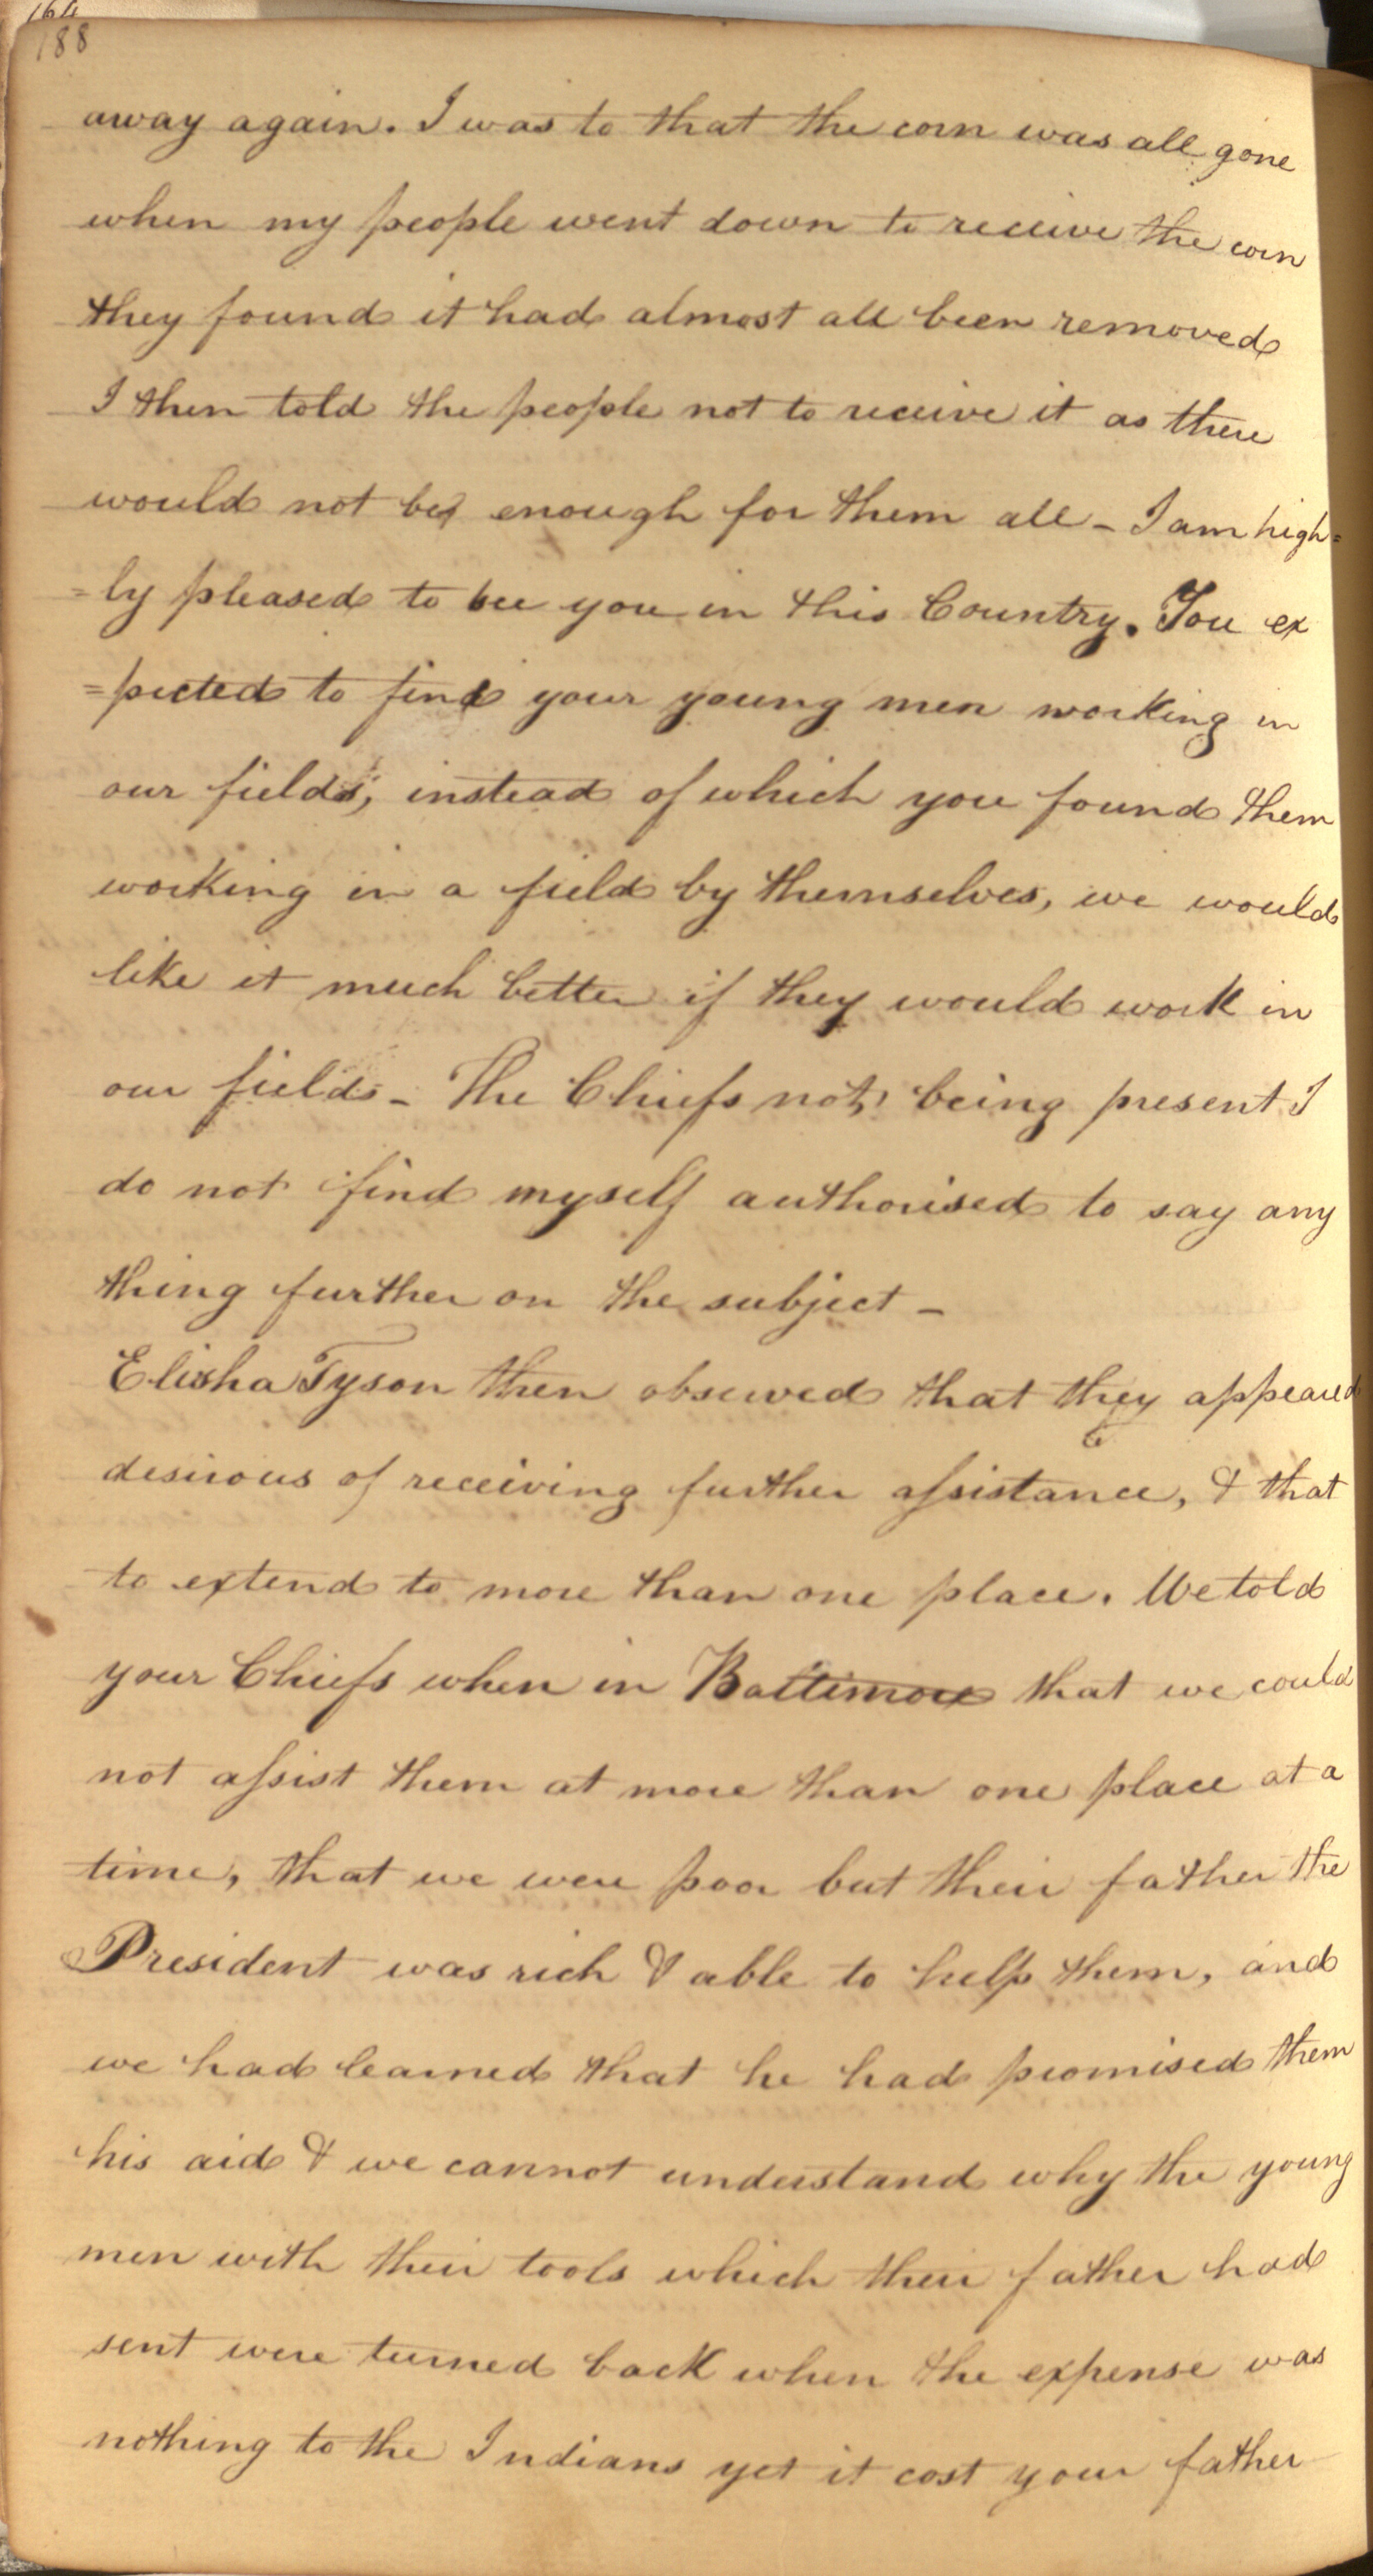 164
188
away again. I was to that the corn was all gone
when my people went down to receive the corn
they found it had almost all been removed
I then told the people not to receive it as there
would not be enough for them all - I am high=
=ly pleased to see you in this Country. You ex
=pected to find your young men working in
our fields, instead of which you found them
working in a field by themselves, we would
like it much better if they would work in
our fields - The Chiefs not being present I
do not find myself authorised to say any
thing further on the subject -
Elisha Tyson then observed that they appeared
desirous of receiving further assistance, & that
to extend to more than one place. We told
your Chiefs when in Baltimore that we could
not assist them at more than one place at a
time, that we were poor but their father the
President was rich & able to help them, and
we had learned that he had promised them
his aid & we cannot understand why the young
men with their tools which their father had
sent were turned back when the expense was
nothing to the Indians yet it cost your father